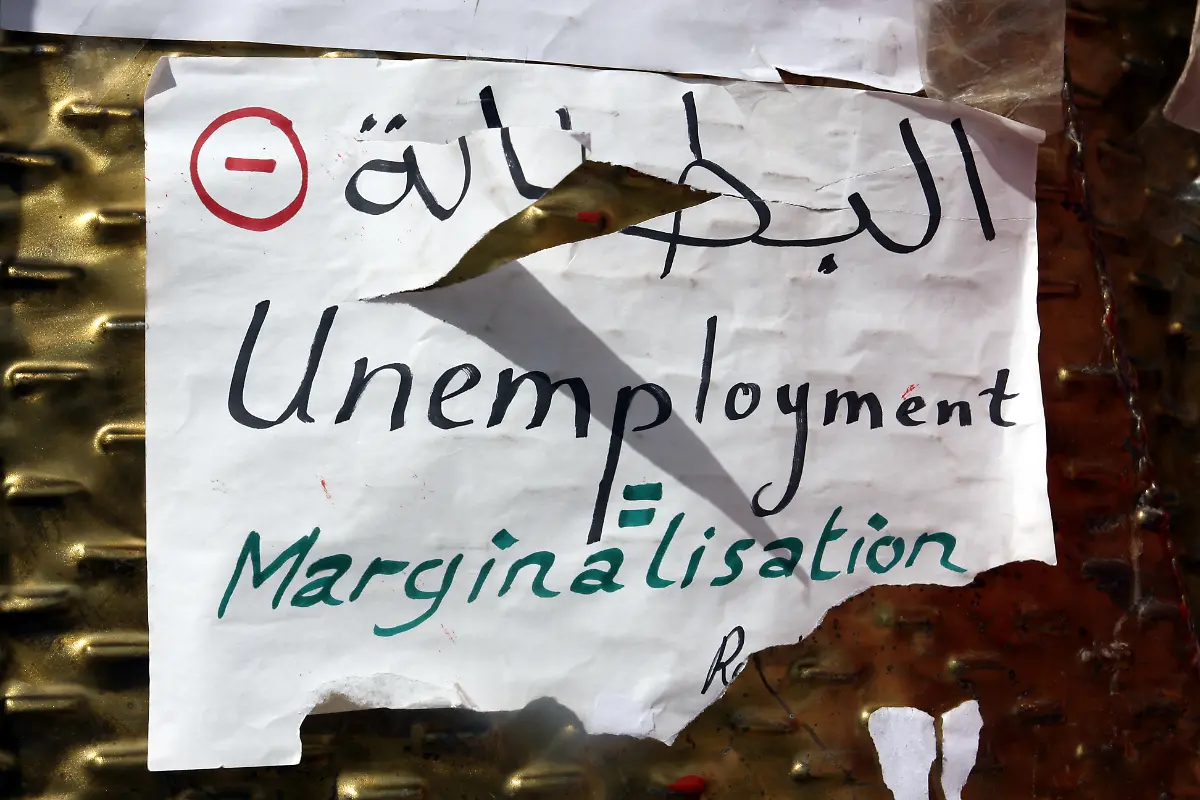 البطالة ⊖
Unemployment
=
Marginalisation